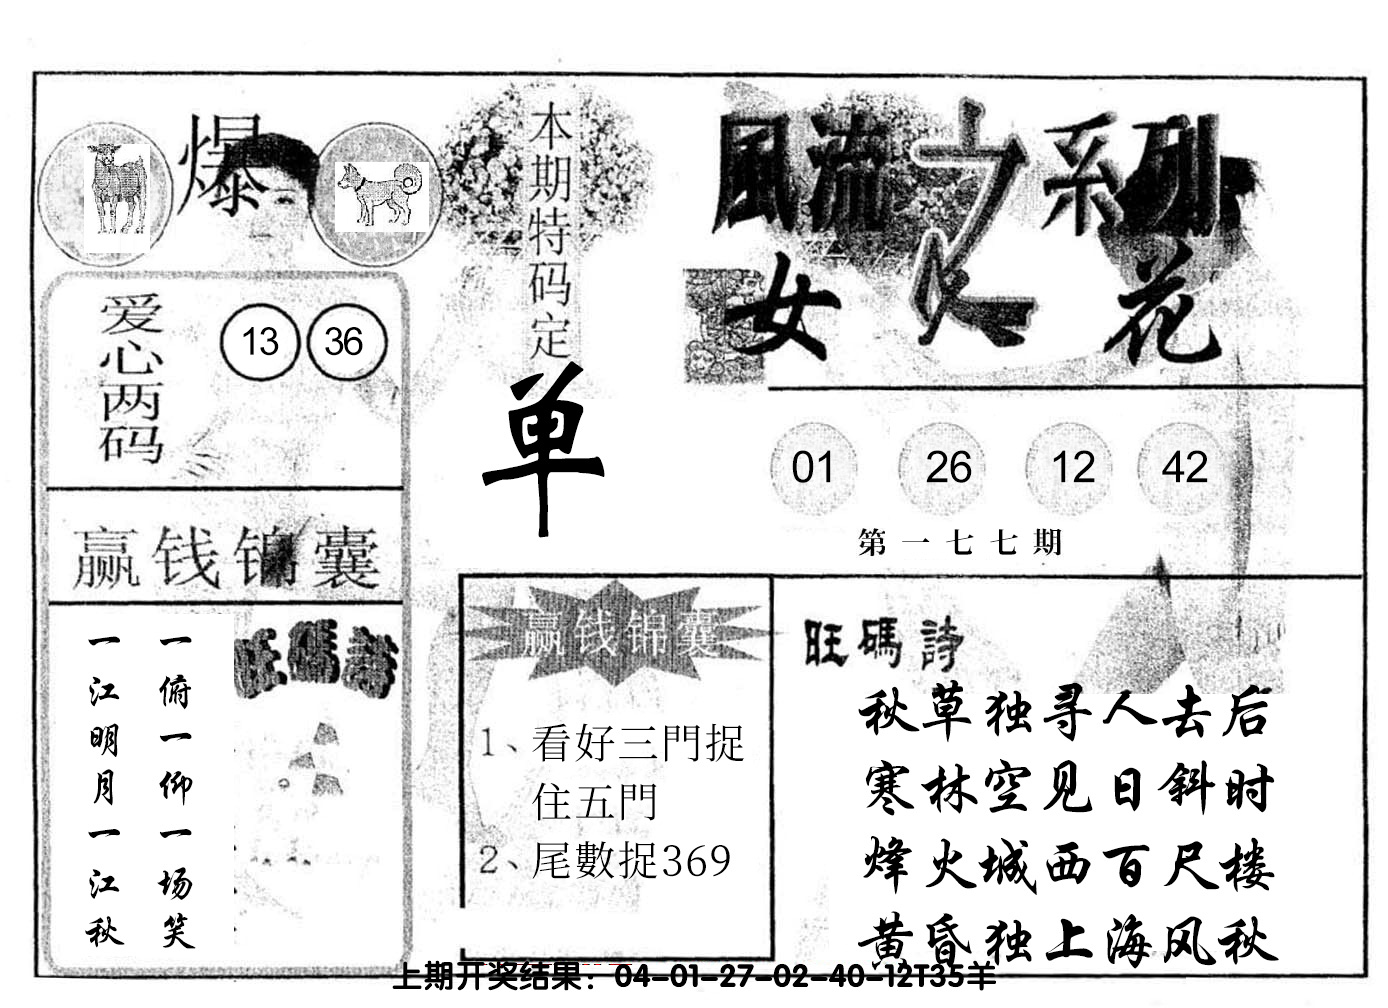 爆
本期特码定
单
風流之系列
女人花
爱心两码
13 36
01 26 12 42
第一七七期
赢钱锦囊
一俯一仰一场笑
一江明月一江秋
旺碼詩
赢钱锦囊
1、看好三門捉
住五門
2、尾數捉369
旺碼詩
秋草独寻人去后
寒林空见日斜时
烽火城西百尺楼
黄昏独上海风秋
上期开奖结果：04-01-27-02-40-12T35羊